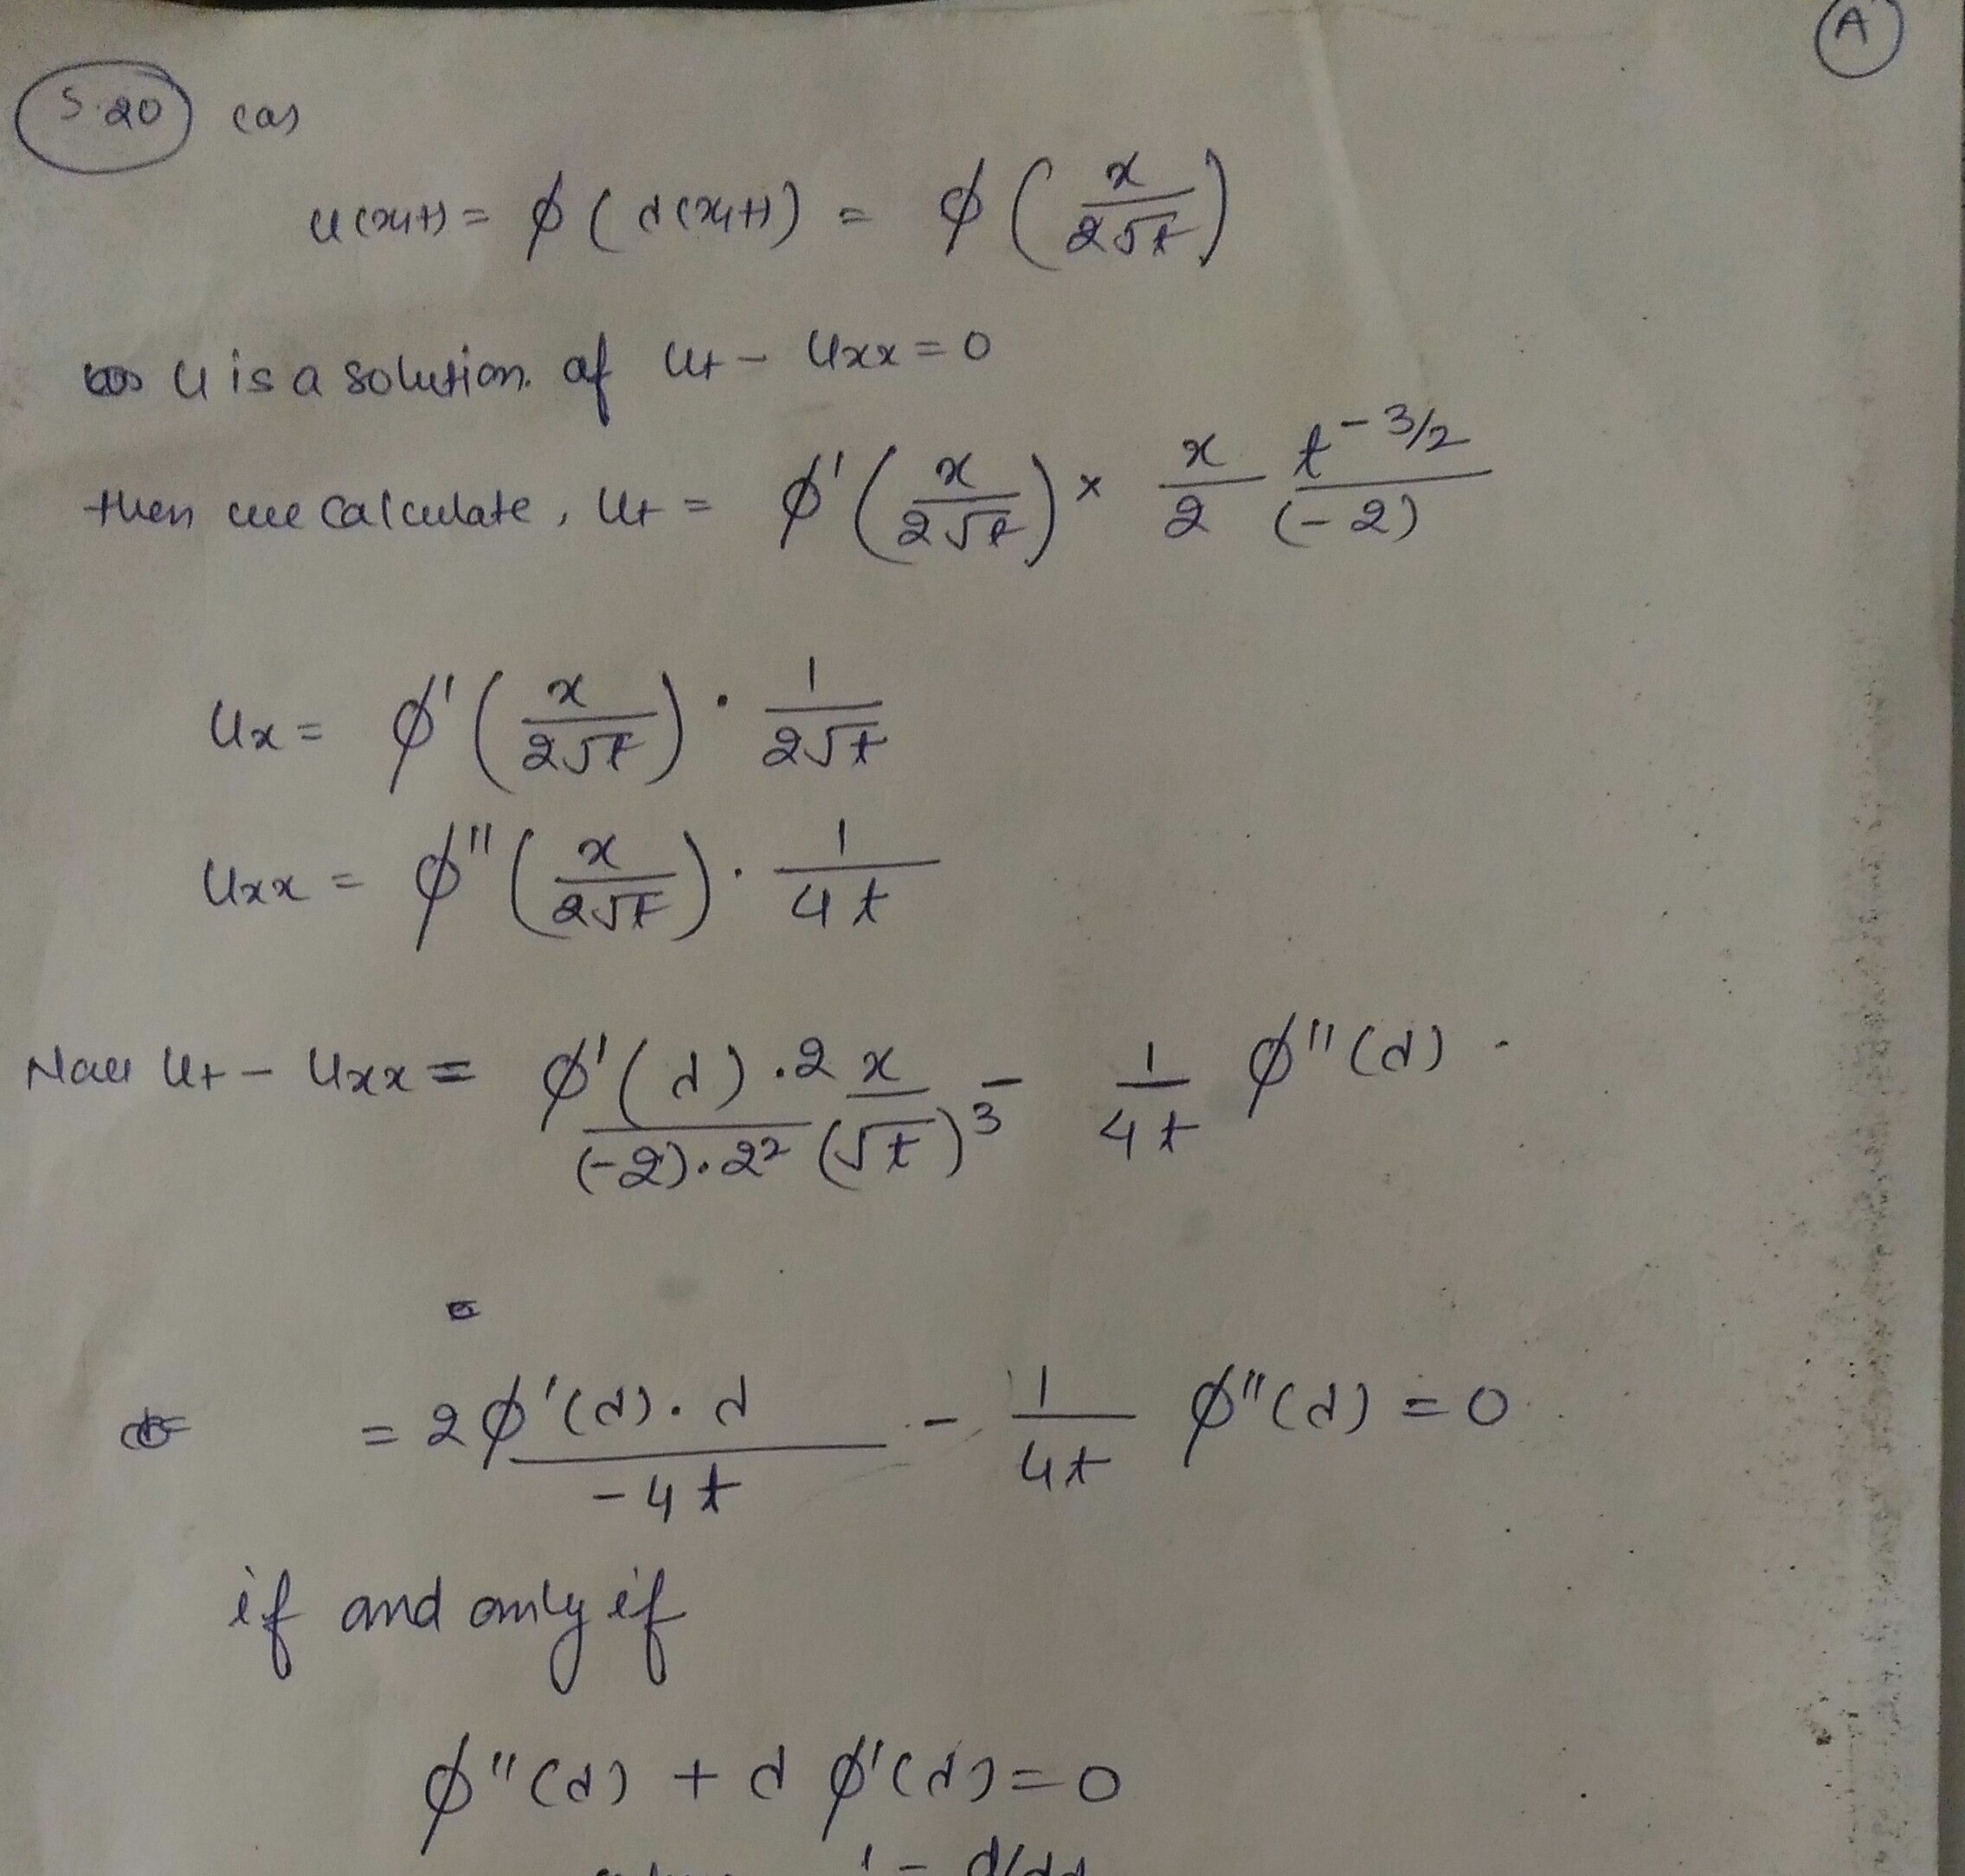 A
5.20 (a)
u(x,t) = φ(d(x,t)) = φ(x/2√t)
u is a solution. of ut - uxx = 0
then we calculate, ut = φ'(x/2√t) × x/2 t^-3/2/(-2)
ux = φ'(x/2√t) · 1/2√t
uxx = φ''(x/2√t) · 1/4t
Now ut - uxx = φ'(d)·2x/(-2)·2²(√t)³ - 1/4t φ''(d) ·
= 2φ'(d)·d/-4t - 1/4t φ''(d) = 0
if and only if
φ''(d) + d φ'(d) = 0